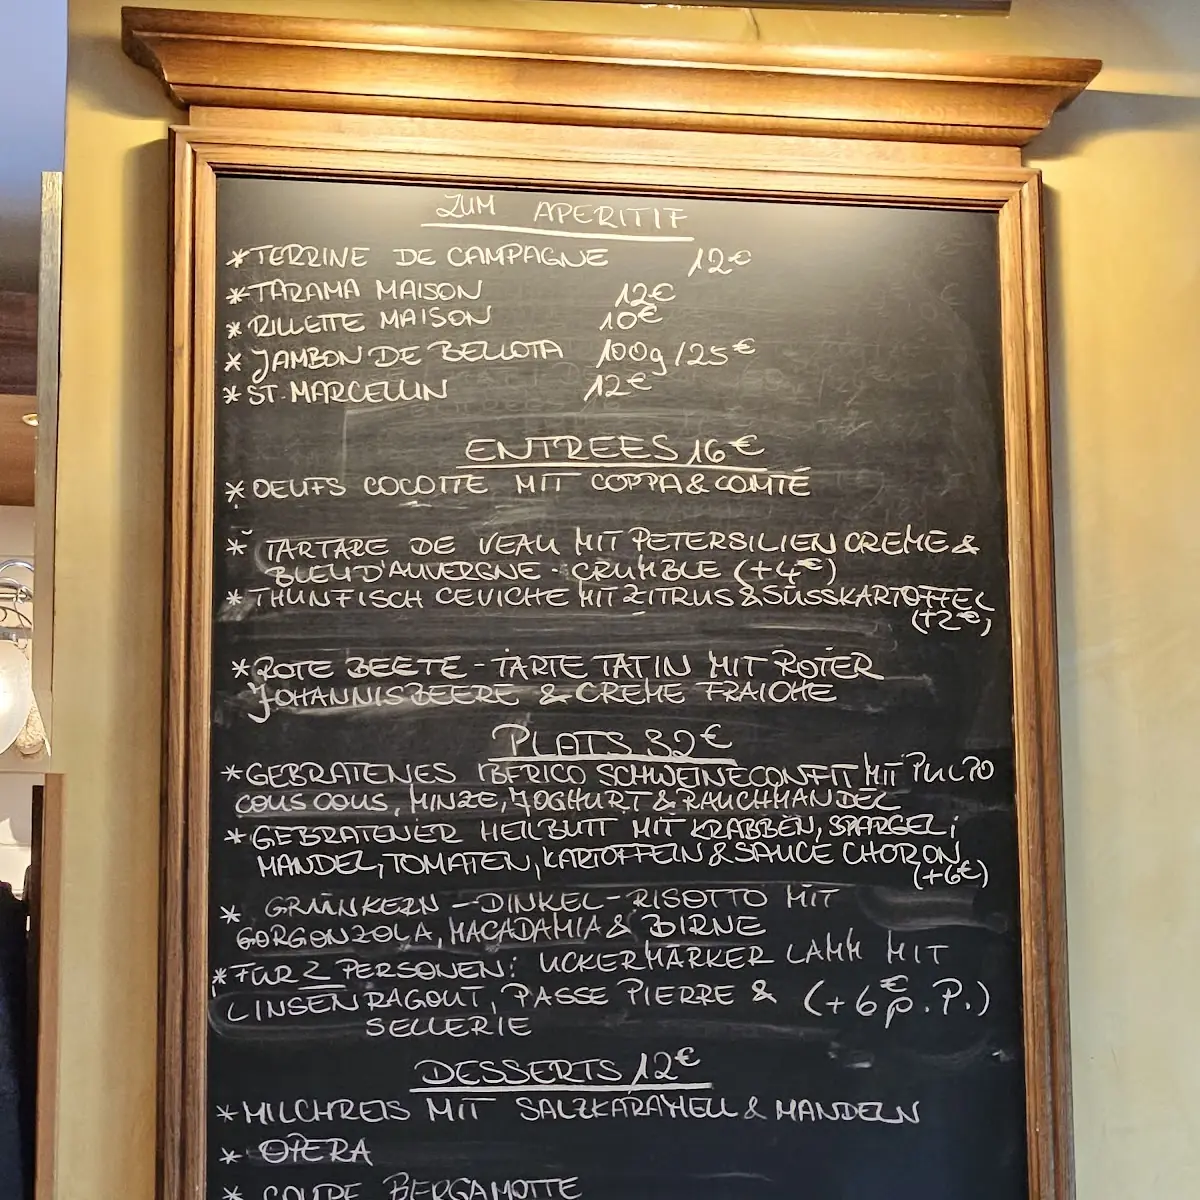 ZUM APERITIF
* TERRINE DE CAMPAGNE 12€
* TARAMA MAISON 12€
* RILLETTE MAISON 10€
* JAMBON DE BELLOTA 100g/25€
* ST. MARCELLIN 12€
ENTREES 16€
* OEUFS COCOTTE MIT COPPA & COMTÉ
* TARTARE DE VEAU MIT PETERSILIENCREME &
BLEU D'AUVERGNE - CRUMBLE (+4€)
* THUNFISCH CEVICHE MIT ZITRUS & SÜSSKARTOFFEL
(+2€)
* ROTE BEETE - TARTE TATIN MIT ROTER
JOHANNISBEERE & CREME FRAICHE
PLATS 32€
* GEBRATENES IBERICO SCHWEINECONFIT MIT PULPO
COUSCOUS, MINZE, JOGHURT & RAUCHMANDEL
* GEBRATENER HEILBUTT MIT KRABBEN, SPARGEL,
MANDEL, TOMATEN, KARTOFFELN & SAUCE CHORON
(+6€)
* GRÜNKERN - DINKEL - RISOTTO MIT
GORGONZOLA, MACADAMIA & BIRNE
* FÜR 2 PERSONEN: UCKERMÄRKER LAMM MIT
LINSENRAGOUT, PASSE PIERRE & (+6€ p. P.)
SELLERIE
DESSERTS 12€
* MILCHREIS MIT SALZKARAMELL & MANDELN
* OPERA
* COUPE BERGAMOTTE